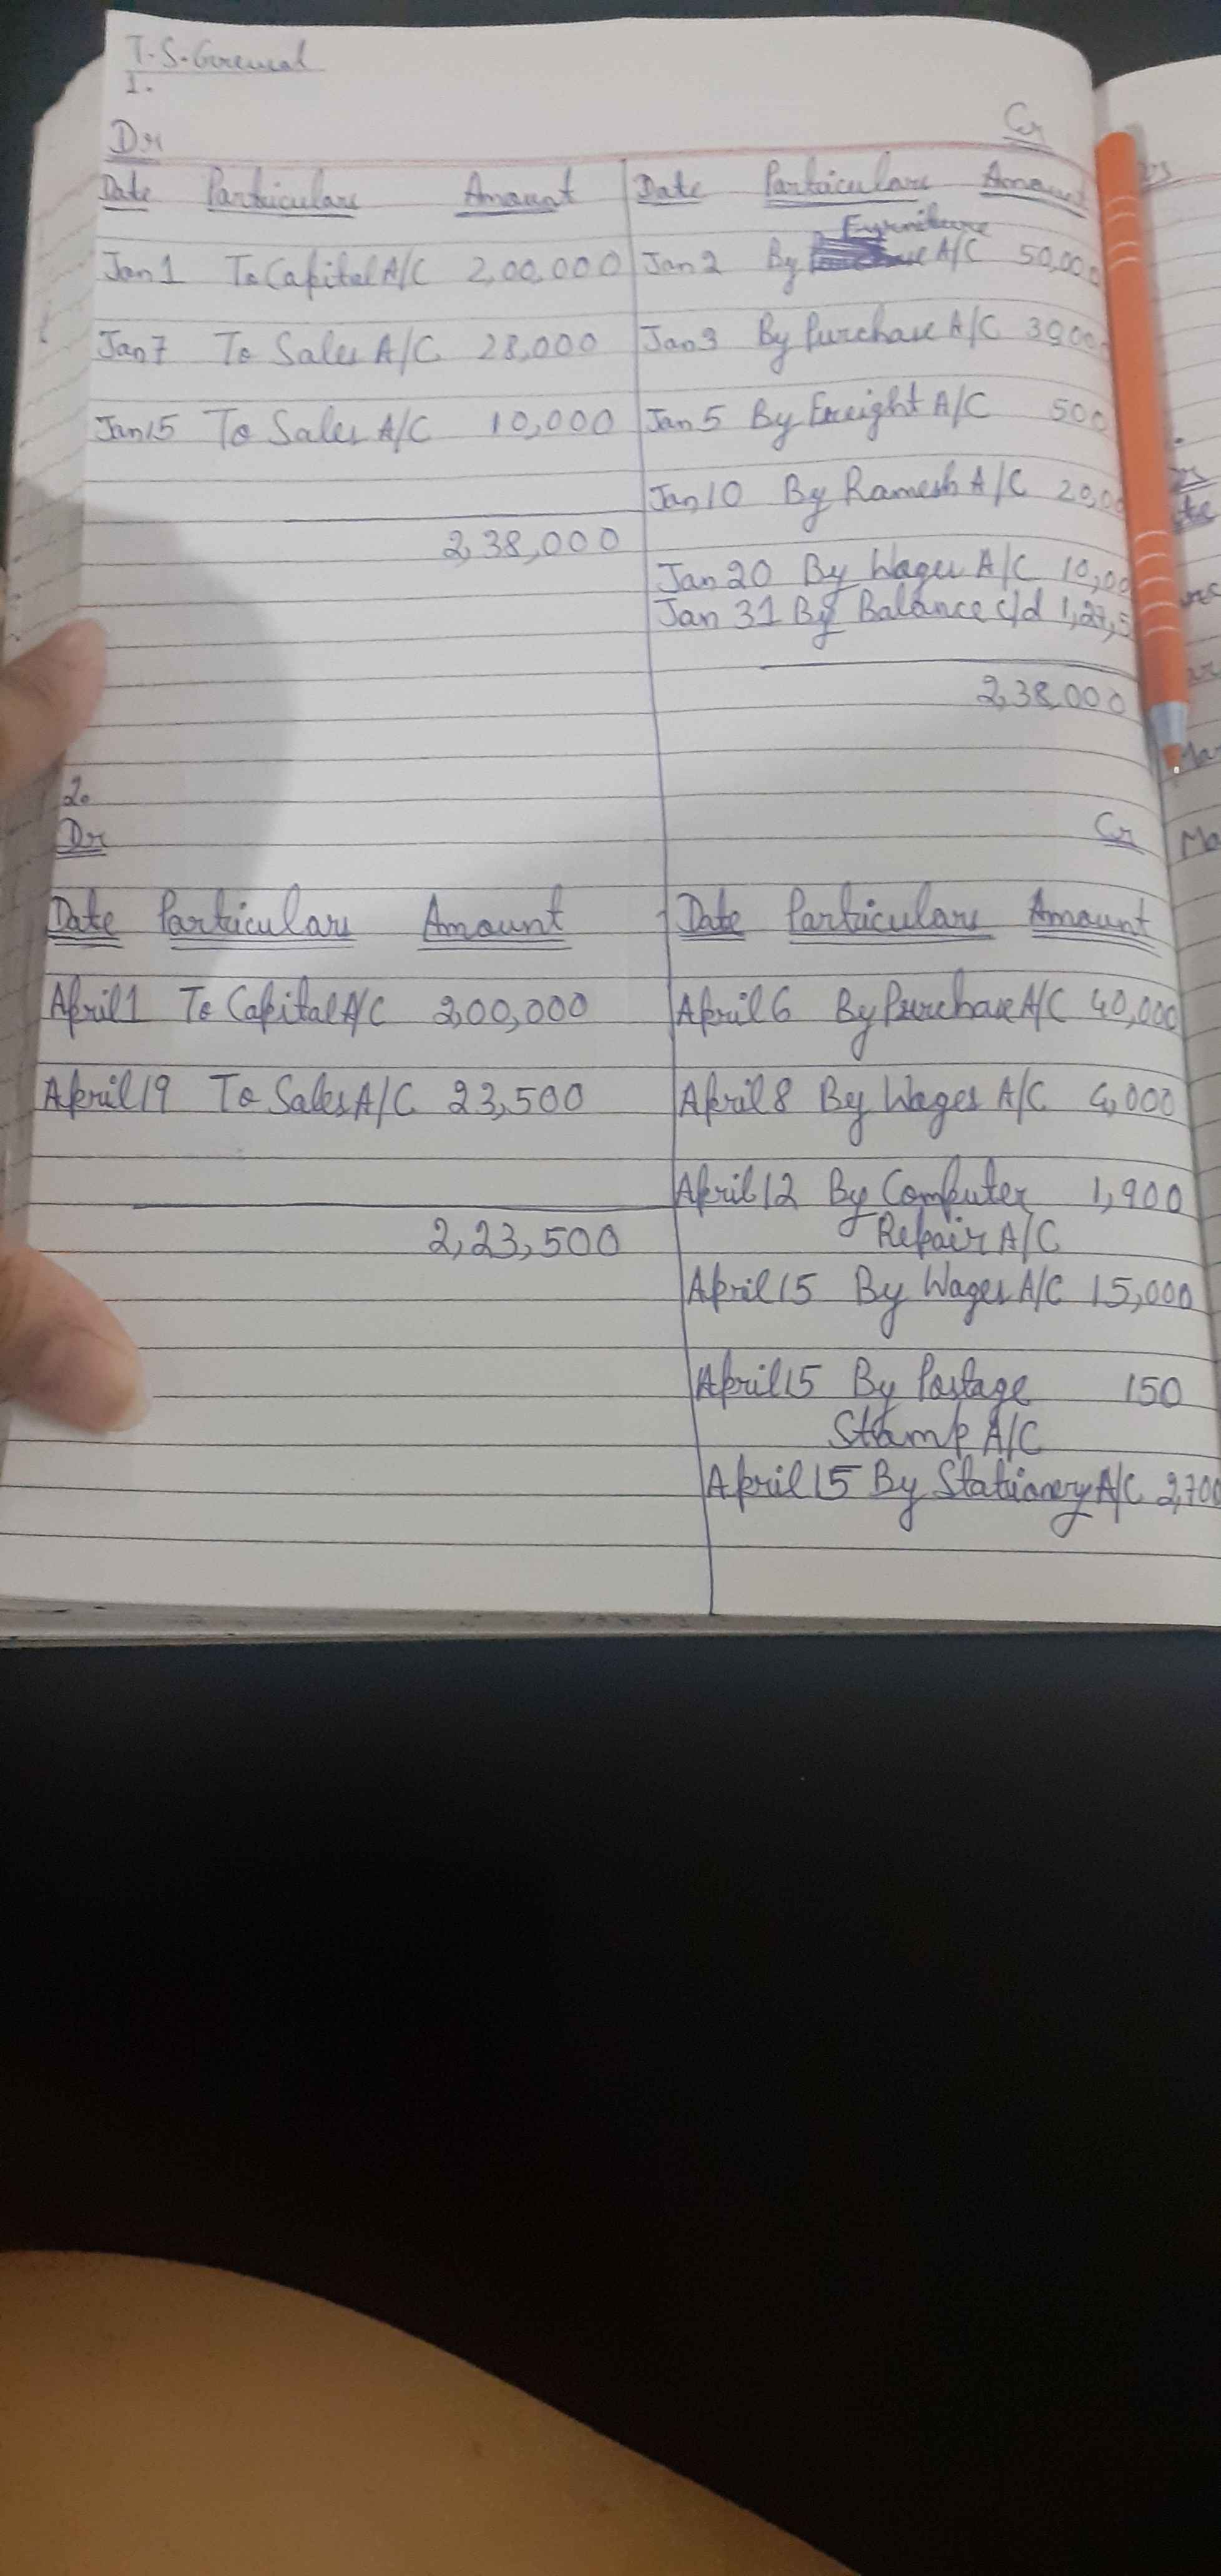 T.S.Grewal
1.
Dr Cr
Date Particulars Amount Date Particulars Amount
Furniture
Jan 1 To Capital A/C 2,00,000 Jan 2 By A/C 50,000
Jan 7 To Sales A/C 28,000 Jan 3 By Purchase A/C 30,00
Jan 15 To Sales A/C 10,000 Jan 5 By Freight A/C 500
Jan 10 By Ramesh A/C 20,0
2,38,000
Jan 20 By Wages A/C 10,00
Jan 31 By Balance c/d 1,27,5
2,38,000
2.
Dr Cr
Date Particulars Amount Date Particulars Amount
April 1 To Capital A/C 2,00,000 April 6 By Purchase A/C 40,000
April 19 To Sales A/C 23,500 April 8 By Wages A/C 4,000
April 12 By Computer 1,900
2,23,500 Repair A/C
April 15 By Wages A/C 15,000
April 15 By Postage 150
Stamp A/C
April 15 By Stationery A/C 2,700